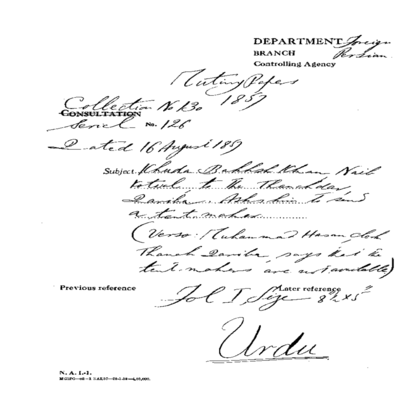 DEPARTMENT Foreign
BRANCH Persian
Controlling Agency
Mutiny Papers
1857
Collection No 130
CONSULTATION
Serial No. 126
Dated 16 August 1857
Subject. Khuda Bakhsh Khan, Naib
Kotwal to the Thanedar,
Dariba. Asks him to send
a tent maker
(Verso: Muhammad Hasan, clerk
Thanah Dariba, says that the
tent-makers are not available)
Previous reference
Later reference
Fol 1, Size 8"x5"
Urdu
N. A. I.-1.